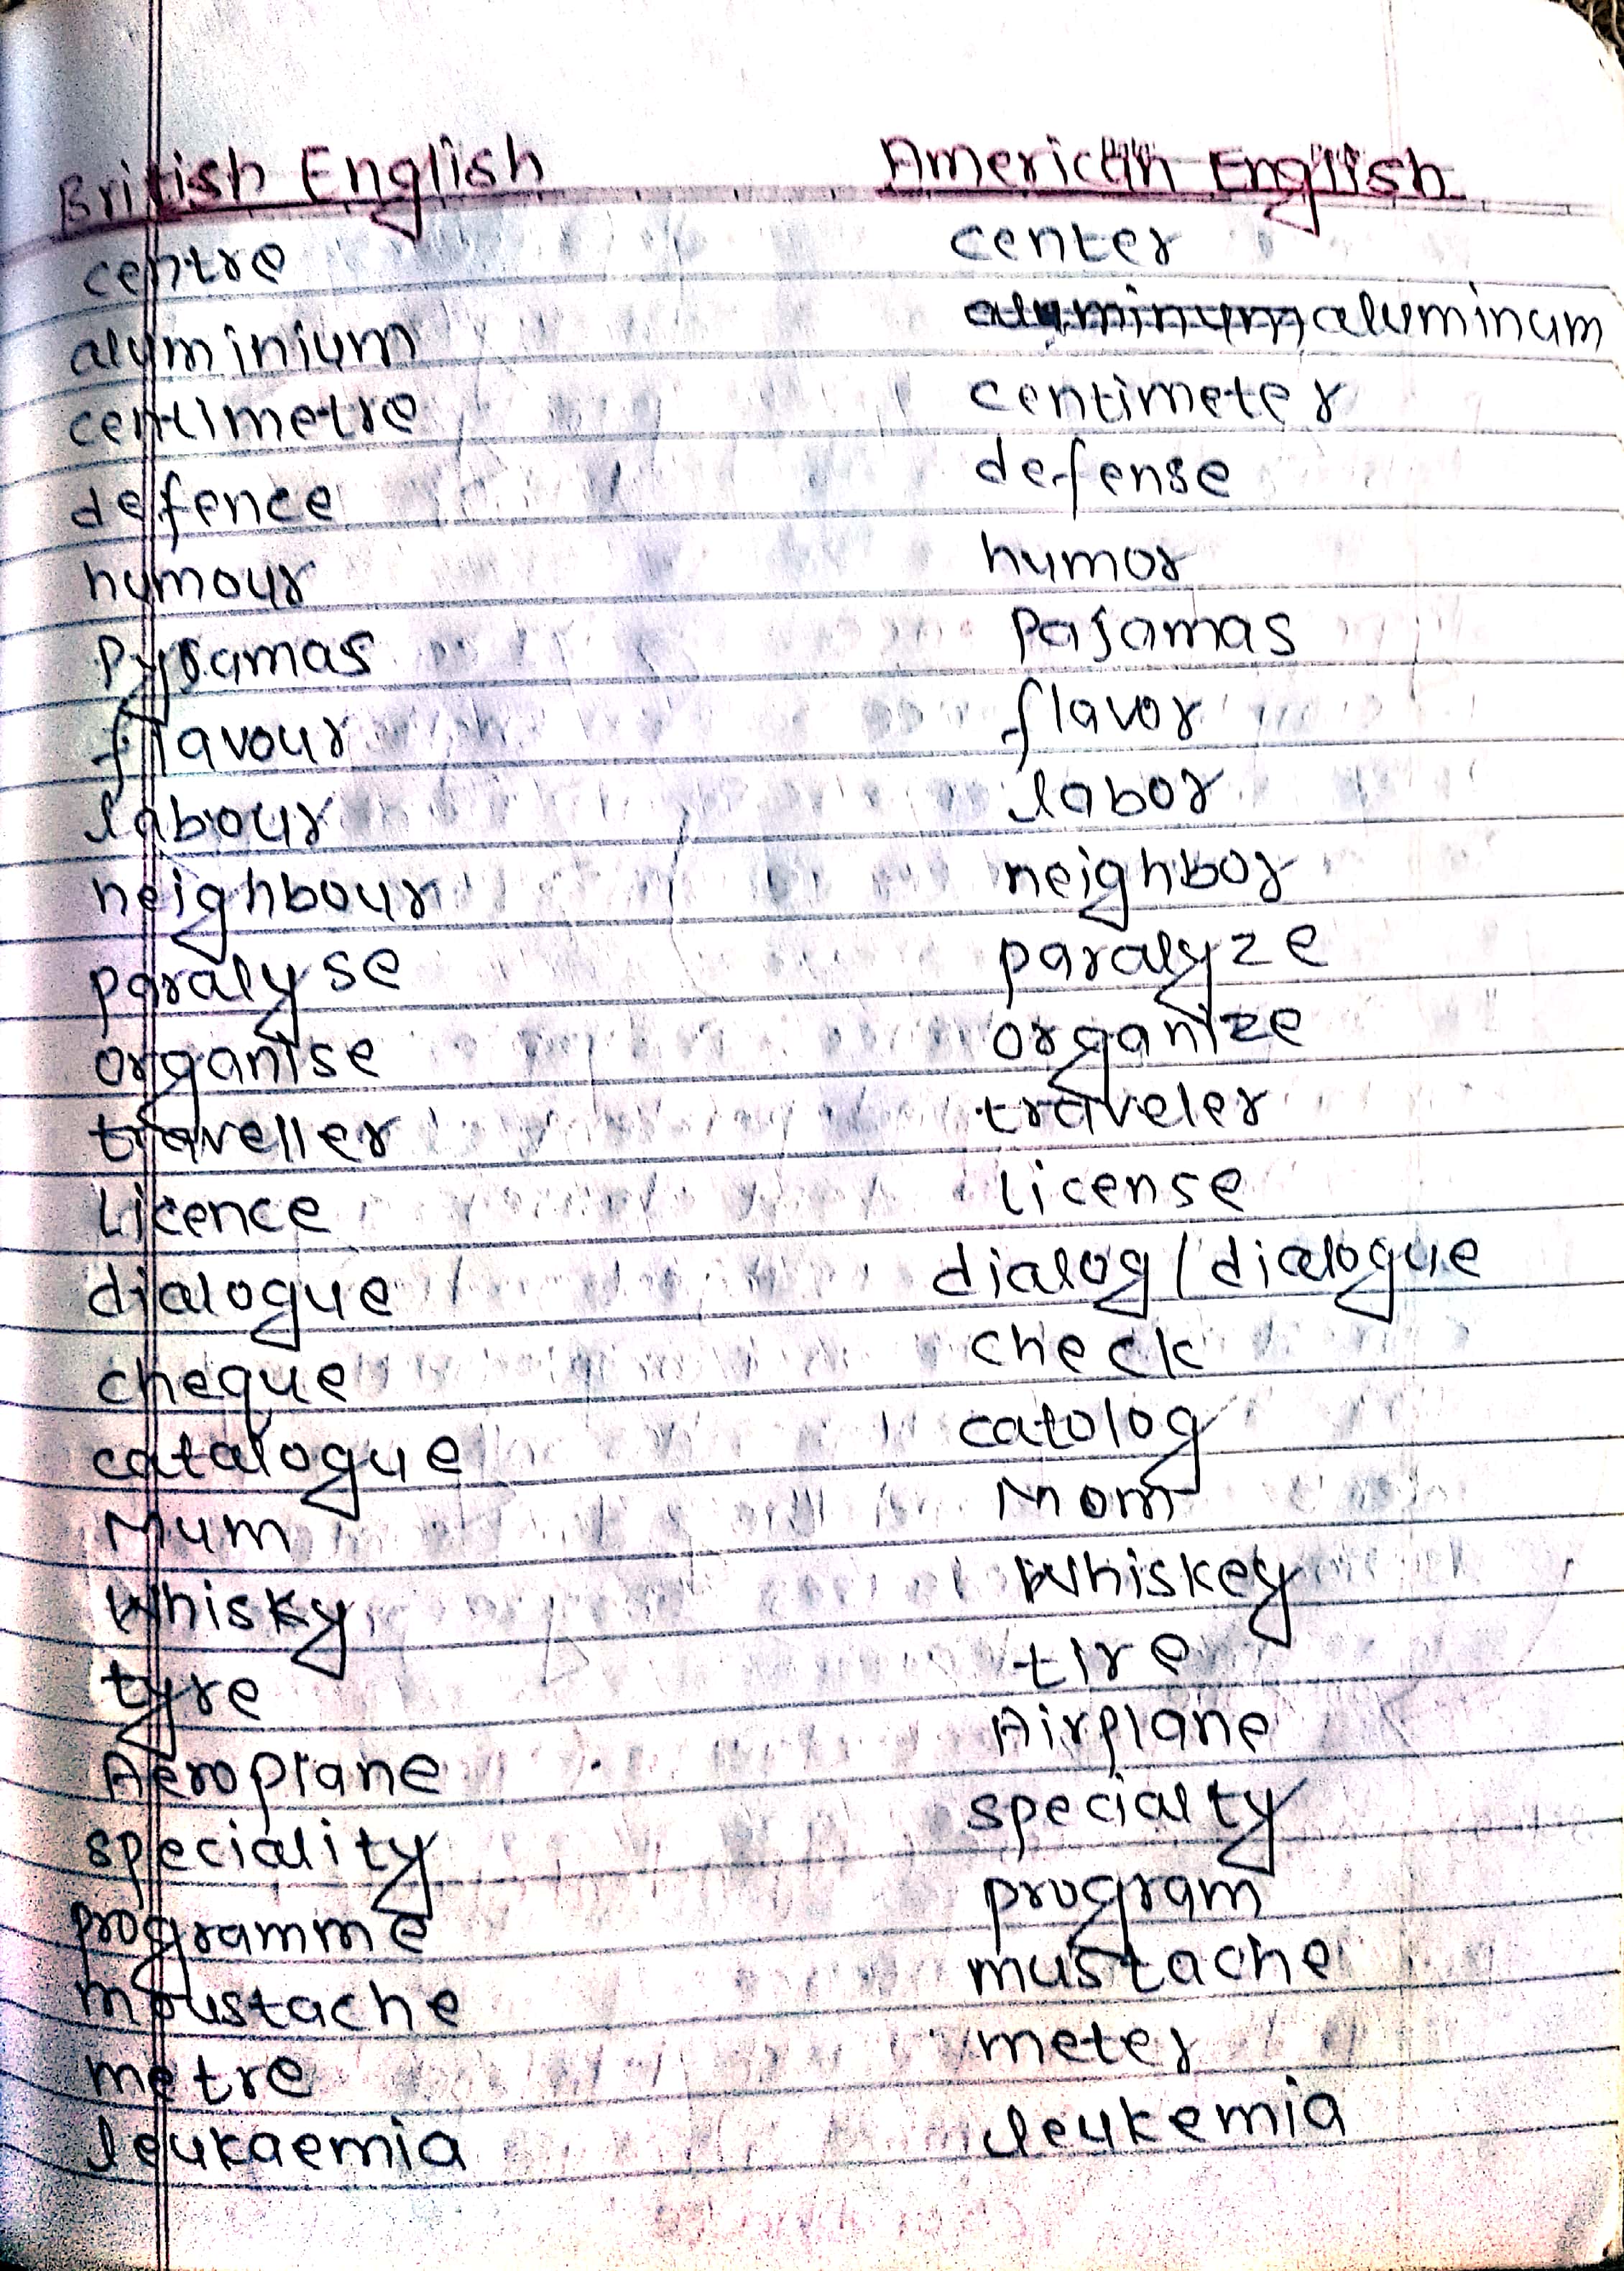 British English American English
centre center
aluminium aluminum aluminum
centimetre centimeter
defence defense
humour humor
Pyjamas Pajamas
flavour flavor
labour labor
neighbour neighbor
paralyse paralyze
organise organize
traveller traveler
Licence License
dialogue dialog / dialogue
cheque check
catalogue catolog
Mum Mom
Whisky Whiskey
tyre tire
Aeroplane Airplane
speciality specialty
programme program
moustache mustache
metre meter
leukaemia leukemia